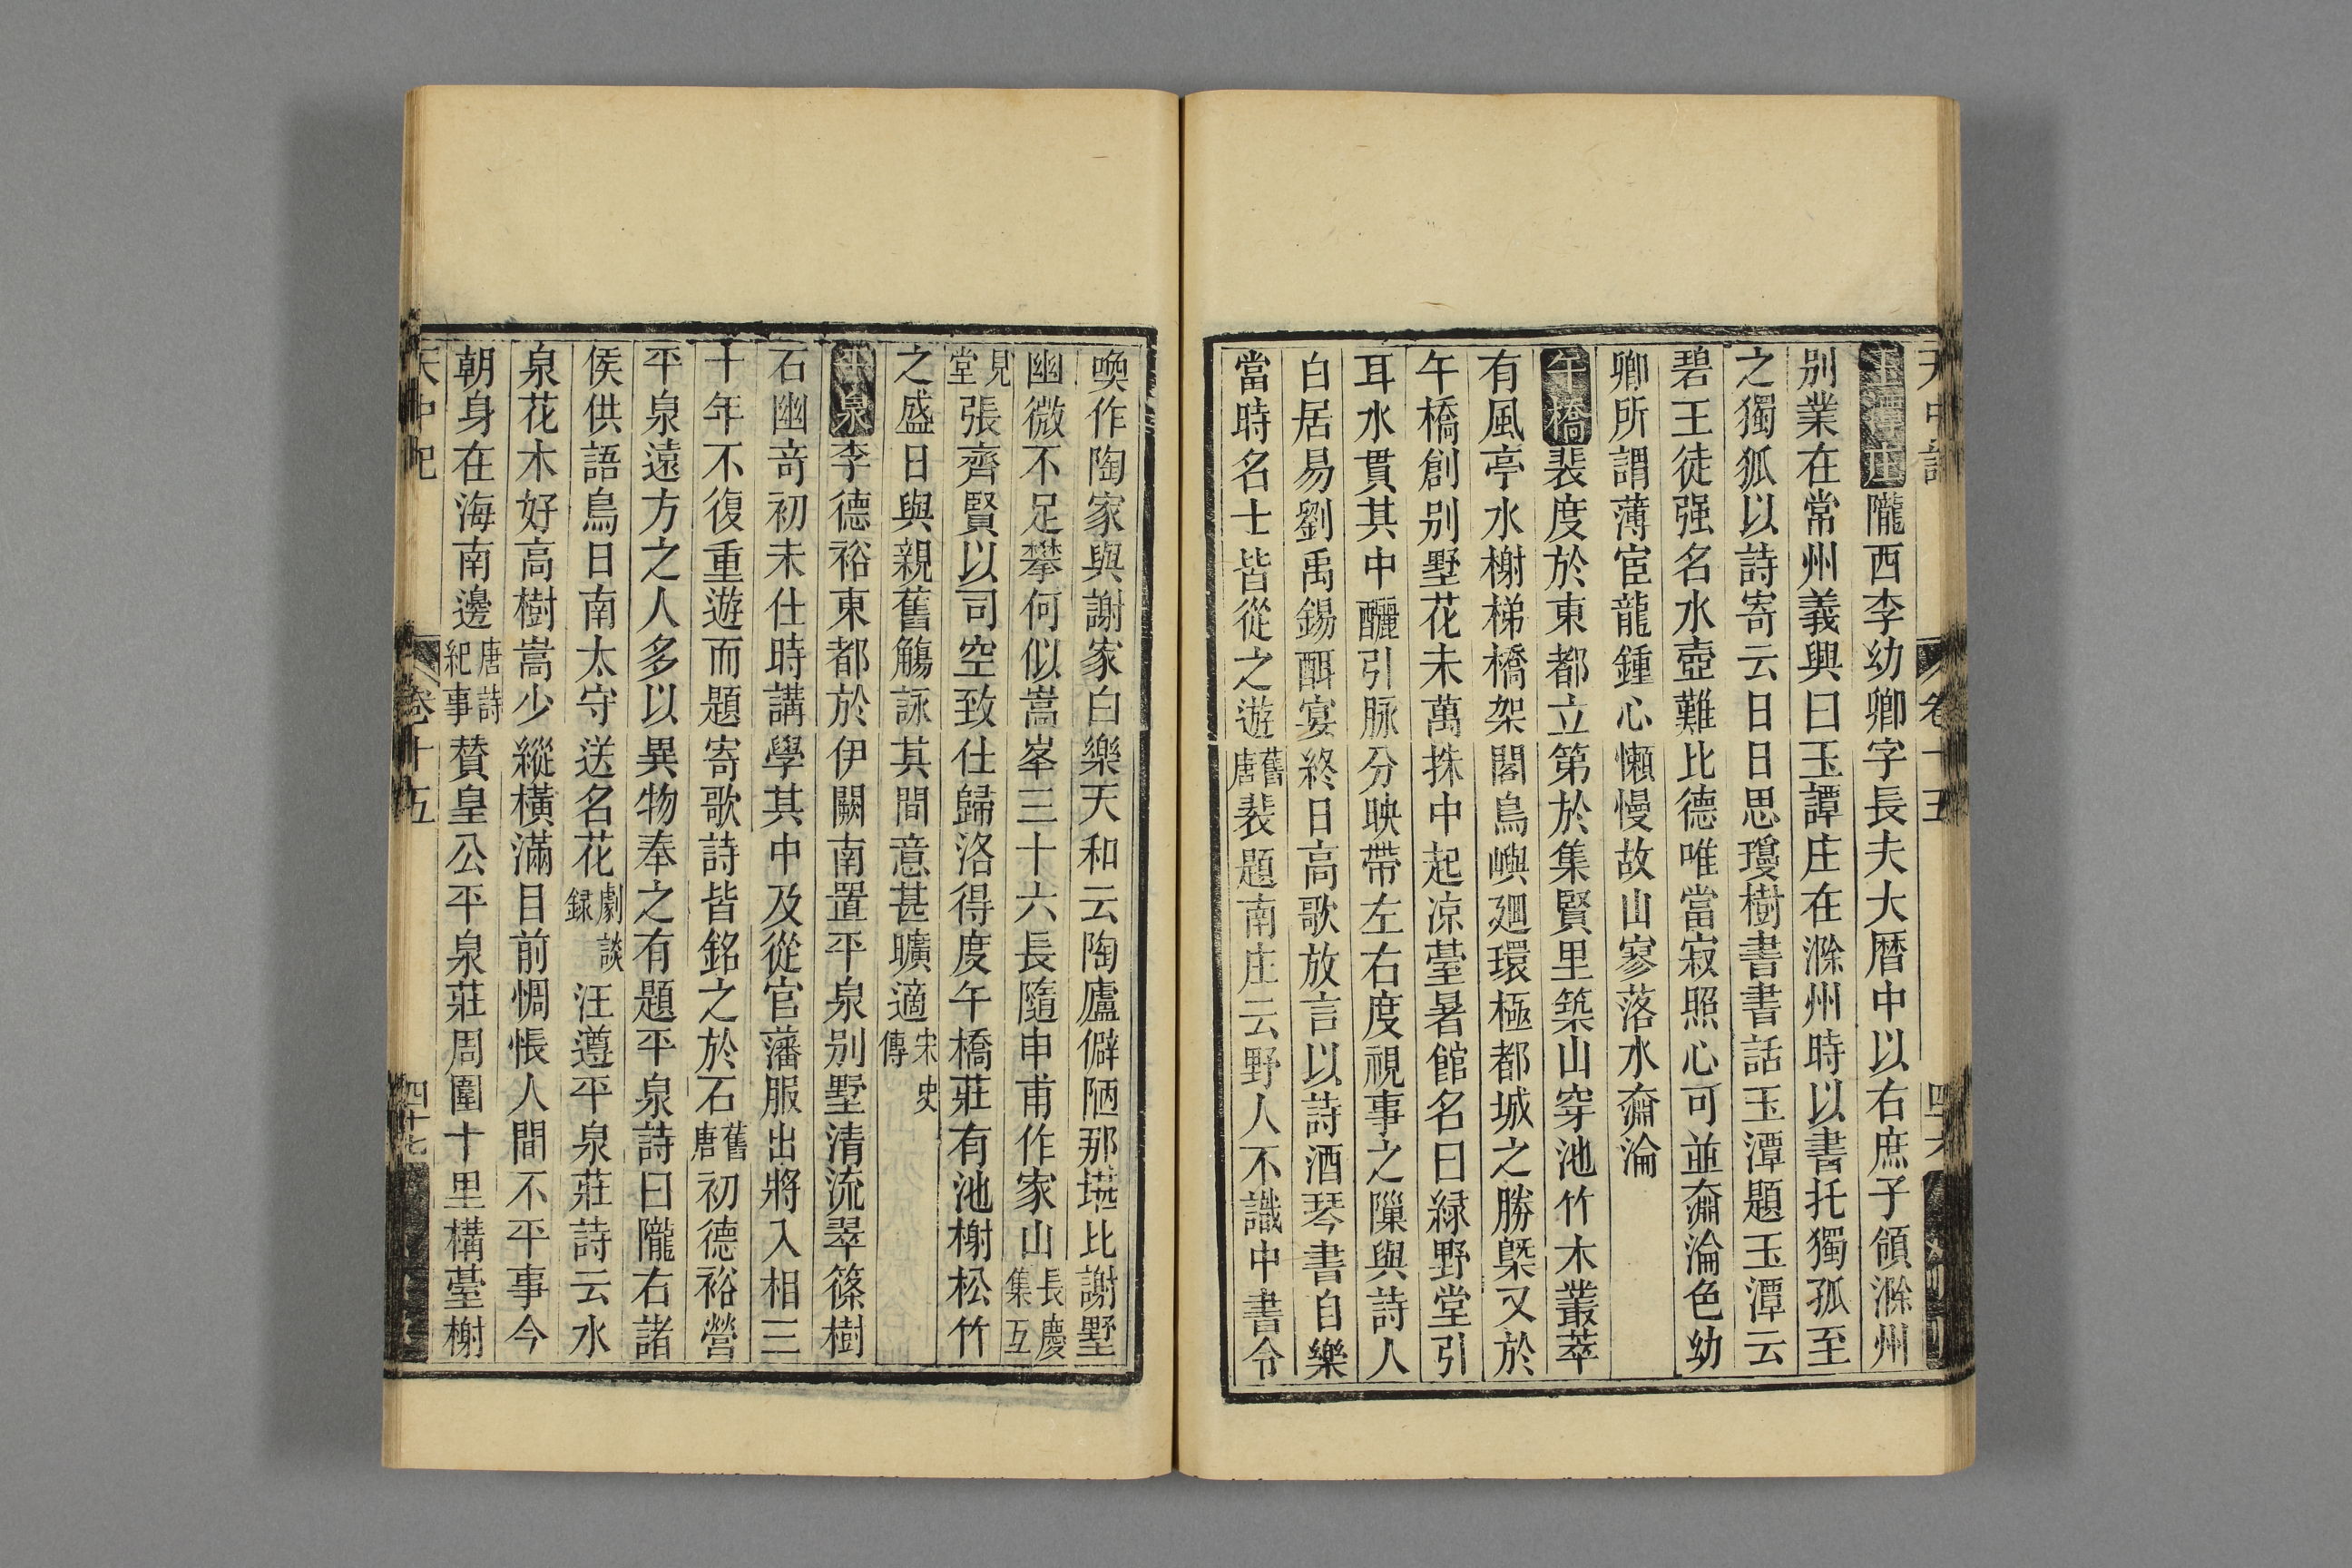 天中記 卷十五 四十六
玉潭庄隴西李幼卿字長夫大曆中以右庶子領滁州
别業在常州義興曰玉譚庄在滁州時以書托獨孤至
之獨狐以詩寄云日日思瓊樹書書話玉潭題玉潭云
碧王徒强名水壺難比德唯當寂照心可並奫淪色幼
卿所謂薄宦龍鍾心懶慢故山寥落水奫淪
午橋裴度於東都立第於集賢里築山穿池竹木叢萃
有風亭水榭梯橋架閣島嶼廻環極都城之勝槩又於
午橋創别墅花未萬株中起凉臺暑館名曰緑野堂引
耳水貫其中釃引脉分映帶左右度視事之隟與詩人
白居易劉禹錫酣宴終日高歌放言以詩酒琴書自樂
當時名士皆從之遊舊唐裴題南庄云野人不識中書令
喚作陶家與謝家白樂天和云陶廬僻陋那堪比謝墅
幽微不足攀何似嵩峯三十六長隨申甫作家山長慶集互
見堂張齊賢以司空致仕歸洛得度午橋莊有池榭松竹
之盛日與親舊觴詠其間意甚曠適宋史傳
平泉李德裕東都於伊闕南置平泉别墅清流翠篠樹
石幽竒初未仕時講學其中及從官藩服出將入相三
十年不復重遊而題寄歌詩皆銘之於石舊唐初德裕營
平泉遠方之人多以異物奉之有題平泉詩曰隴右諸
侯供語鳥日南太守送名花劇談録汪遵平泉莊詩云水
泉花木好高樹嵩少縱橫滿目前惆悵人間不平事今
朝身在海南邊唐詩紀事贊皇公平泉莊周圍十里構臺榭
天中記 卷十五 四十七